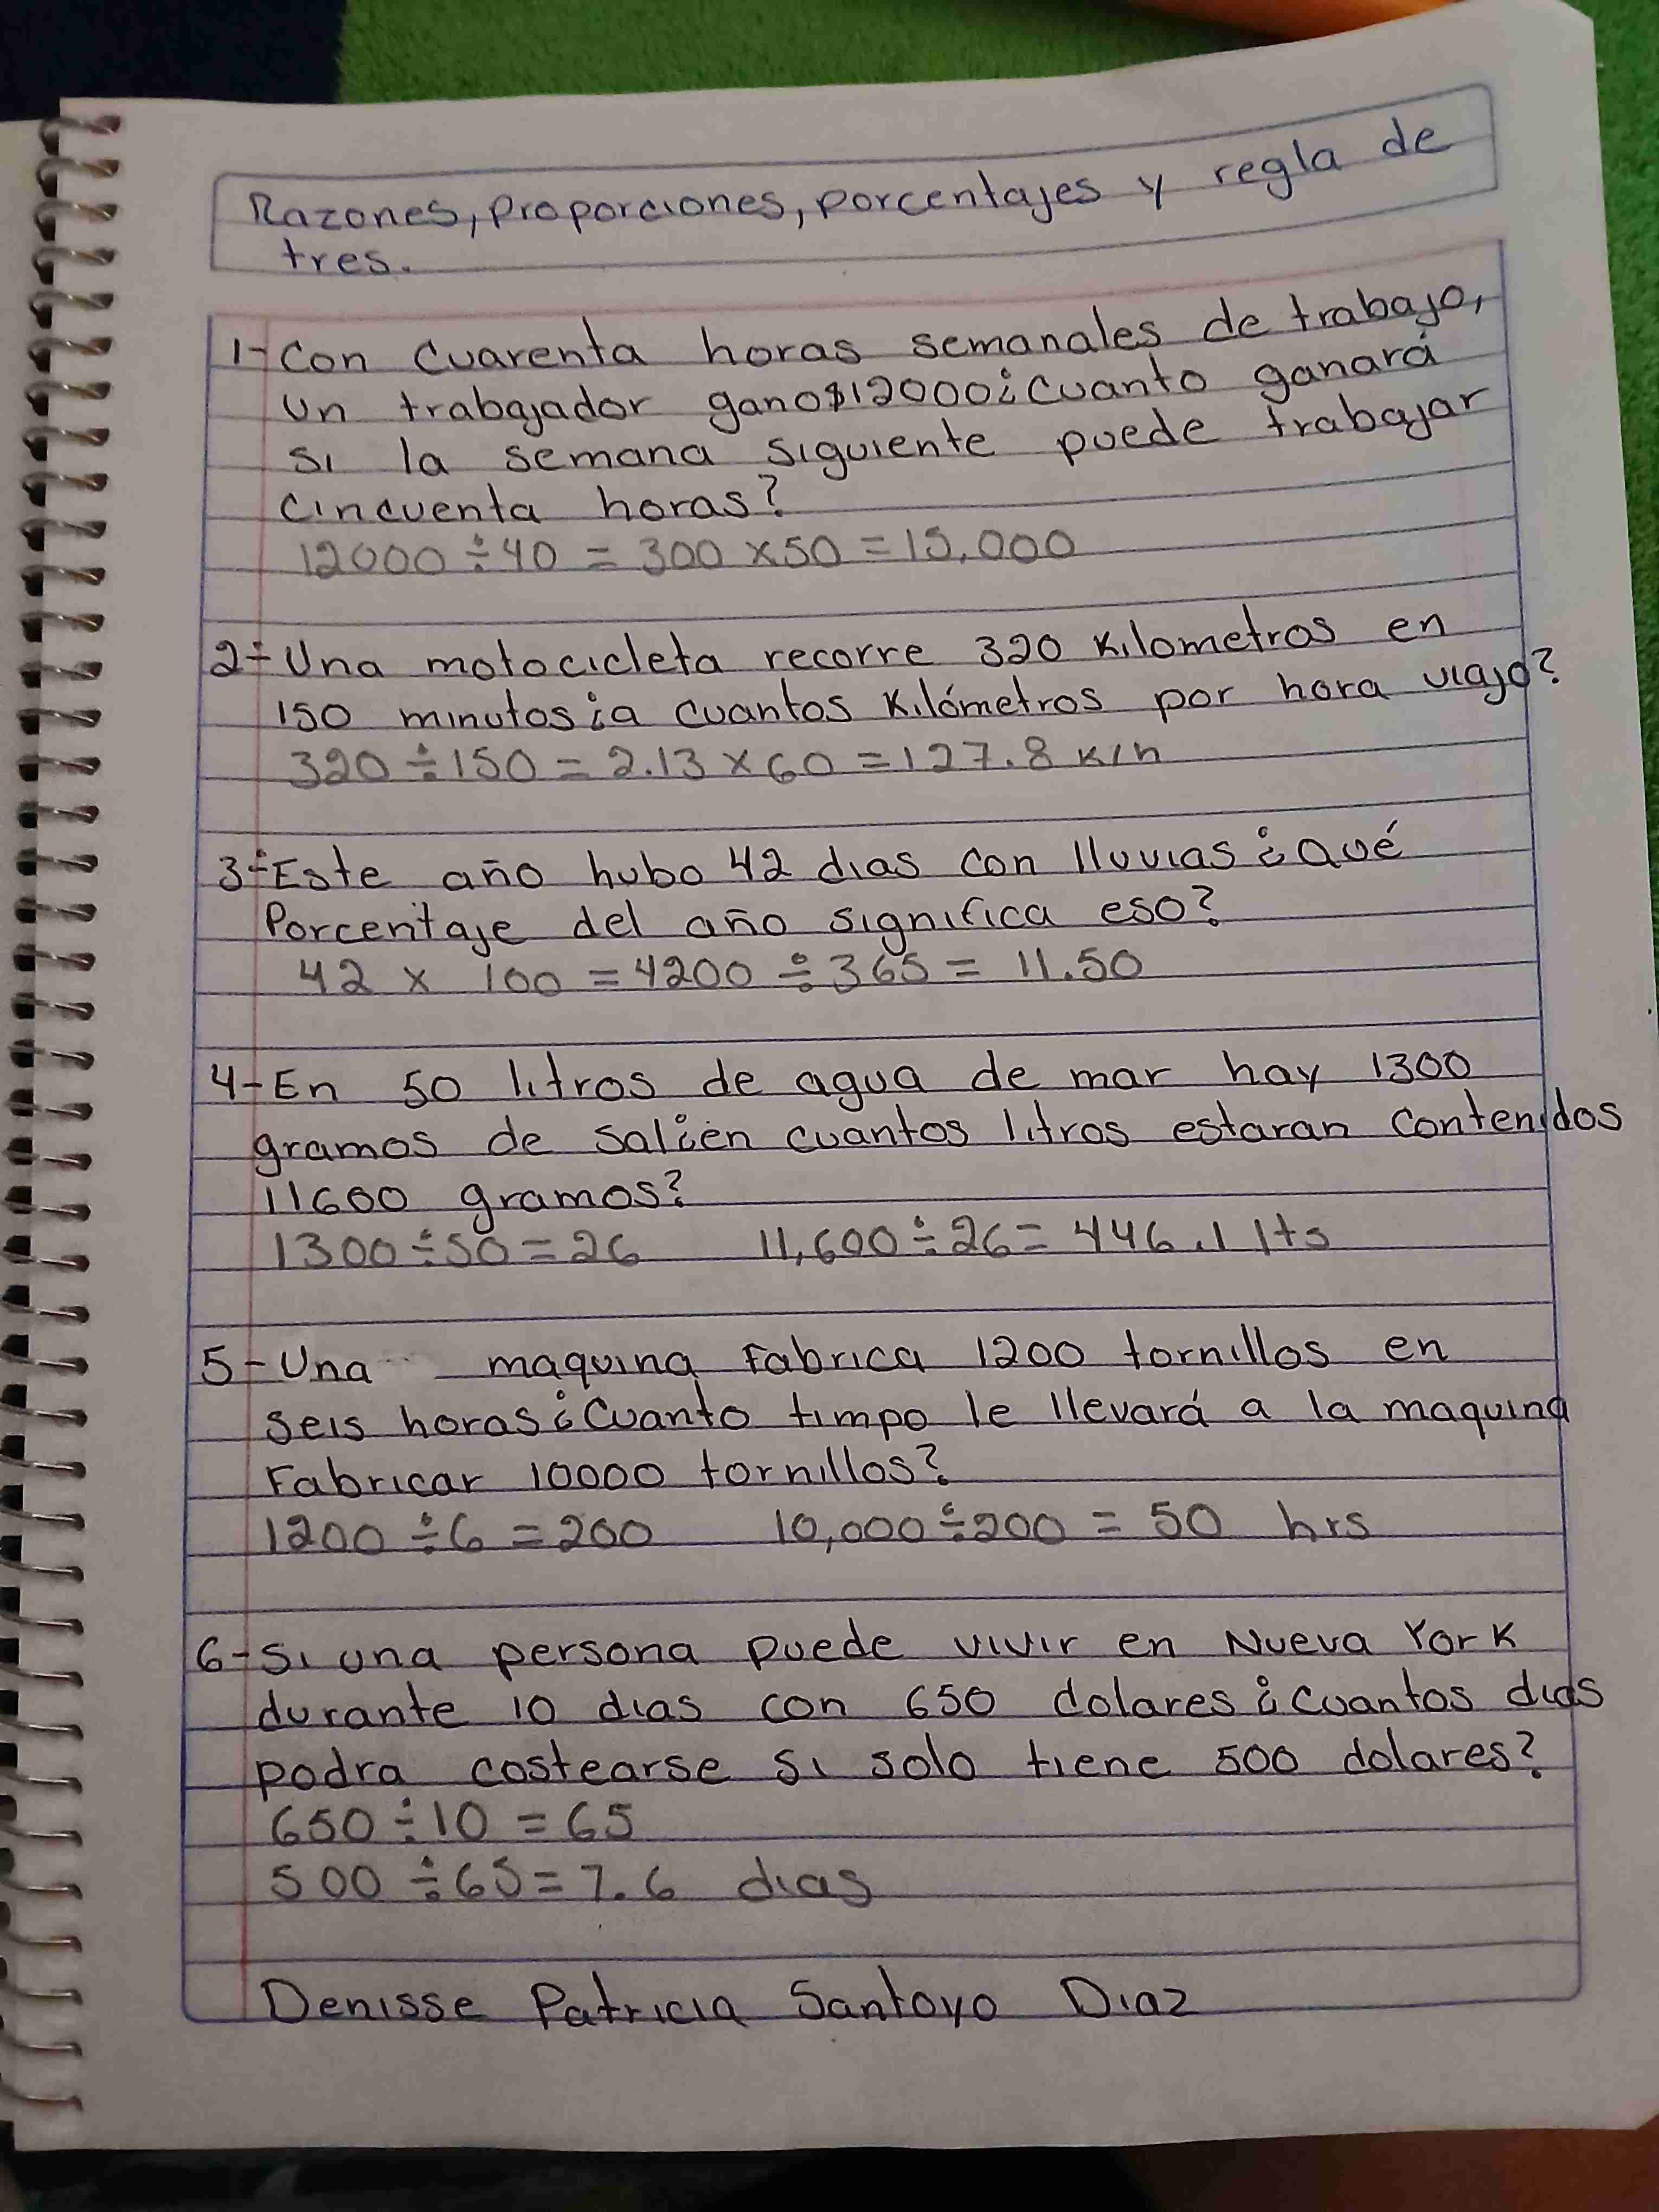 Razones, proporciones, porcentajes y regla de
tres.
1- Con cuarenta horas semanales de trabajo,
un trabajador gano $12000 ¿Cuanto ganará
si la semana siguiente puede trabajar
cincuenta horas?
12000 ÷ 40 = 300 x 50 = 15,000
2- Una motocicleta recorre 320 Kilometros en
150 minutos ¿a cuantos Kilómetros por hora viajo?
320 ÷ 150 = 2.13 x 60 = 127.8 K/h
3- Este año hubo 42 dias con lluvias ¿Qué
Porcentaje del año significa eso?
42 x 100 = 4200 ÷ 365 = 11.50
4- En 50 litros de agua de mar hay 1300
gramos de sal ¿en cuantos litros estaran contenidos
11600 gramos?
1300 ÷ 50 = 26 11,600 ÷ 26 = 446.1 lts
5- Una maquina Fabrica 1200 tornillos en
seis horas ¿Cuanto timpo le llevará a la maquina
Fabricar 10000 tornillos?
1200 ÷ 6 = 200 10,000 ÷ 200 = 50 hrs
6- Si una persona puede vivir en Nueva York
durante 10 dias con 650 dolares ¿cuantos dias
podra costearse si solo tiene 500 dolares?
650 ÷ 10 = 65
500 ÷ 65 = 7.6 dias
Denisse Patricia Santoyo Diaz